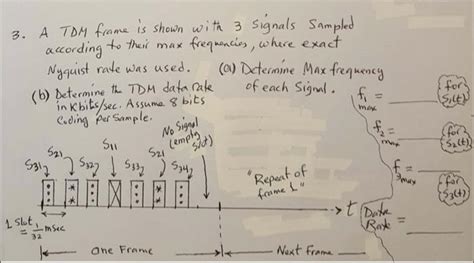 3. A TDM frame is shown with 3 Signals Sampled
according to their max frequencies, where exact
Nyquist rate was used. (a) Determine Max frequency
of each Signal.
(b) Determine the TDM data rate
in Kbits/sec. Assume 8 bits
Coding Per Sample.
f1 max = (for S1(t))
f2 max = (for S2(t))
f3 max = (for S3(t))
Data Rate =
No Signal
(empty
Slot)
S31 S21 S11 S32 S33 S21 S34
"Repeat of
frame 1"
t
1 Slot
= 1/32 msec
One Frame
Next Frame